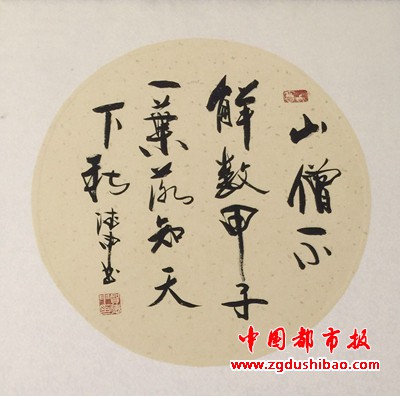 山僧不
解数甲子
一葉落知天
下秋
书
中国都市报
www.zgdushibao.com